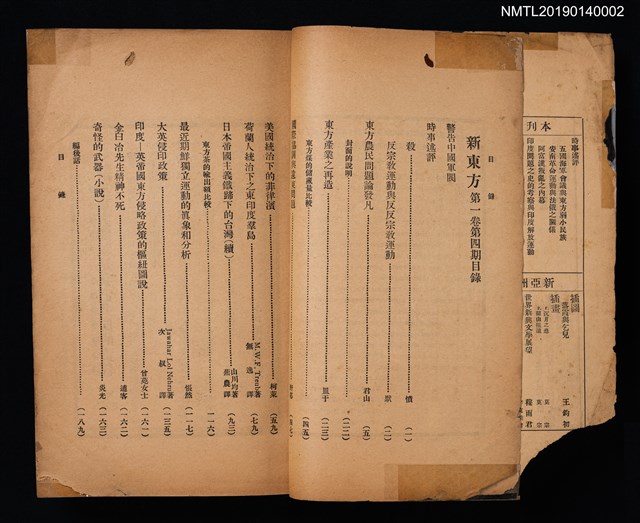 NMTL20190140002
本刊
時事述評
五國海軍會議與東方弱小民族
安南革命運動與法俄之關係
阿富汗叛亂之內幕
印度問題之史的考察與印度解放運動
新亞洲
插圖
插畫
王鈞初
程雨君
目錄
新東方第一卷第四期目錄
警告中國軍閥
時事述評
殺……愼(一)
反宗教運動與反反宗教運動……默(二)
東方農民問題論發凡……君山(五)
封面的說明……(二二)
東方產業之再造……(二三)
東方煤的儲藏量比較……(四五)
美國統治下的菲律濱……柯萊(五九)
荷蘭人統治下之東印度羣島……M.W.F. Treub著 飄逸譯(七九)
日本帝國主義鐵蹄下的台灣(續)……山川均著 蕉農譯(九三)
東方茶的輸出額比較……一一六)
最近期鮮獨立運動的眞象和分析……悵然(一一七)
大英侵印政策……Jawahar Lal Nehru著 次叔譯(一三五)
印度—英帝國東方侵略政策的樞紐圖說……曾克女士(一六一)
金白冶先生精神不死……逋客(一六二)
奇怪的武器(小說)……炎光(一六三)
編後話……(一八九)
目錄